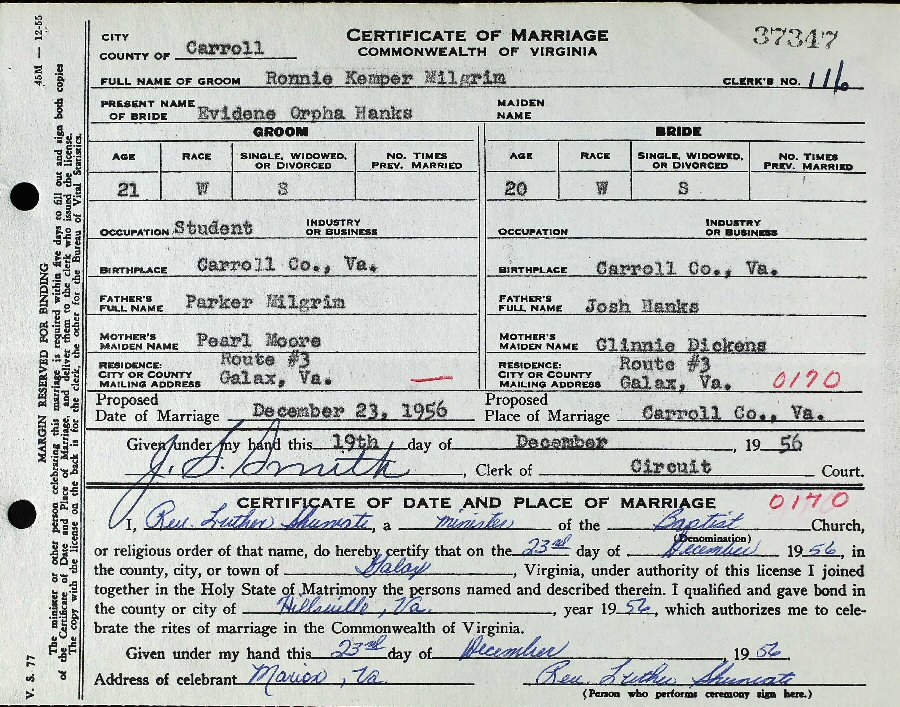 37347
CERTIFICATE OF MARRIAGE
COMMONWEALTH OF VIRGINIA
CITY
COUNTY OF Carroll
FULL NAME OF GROOM Ronnie Kemper Milgrim CLERK'S NO. 116
PRESENT NAME OF BRIDE Evidene Orpha Hanks MAIDEN NAME
GROOM BRIDE
AGE RACE SINGLE, WIDOWED, OR DIVORCED NO. TIMES PREV. MARRIED AGE RACE SINGLE, WIDOWED, OR DIVORCED NO. TIMES PREV. MARRIED
21 W S 20 W S
OCCUPATION Student INDUSTRY OR BUSINESS OCCUPATION INDUSTRY OR BUSINESS
BIRTHPLACE Carroll Co., Va. BIRTHPLACE Carroll Co., Va.
FATHER'S FULL NAME Parker Milgrim FATHER'S FULL NAME Josh Hanks
MOTHER'S MAIDEN NAME Pearl Moore MOTHER'S MAIDEN NAME Clinnie Dickens
RESIDENCE: CITY OR COUNTY MAILING ADDRESS Route #3 Galax, Va. — RESIDENCE: CITY OR COUNTY MAILING ADDRESS Route #3 Galax, Va. 0170
Proposed Date of Marriage December 23, 1956 Proposed Place of Marriage Carroll Co., Va.
Given under my hand this 19th day of December, 1956
J. S. Smith, Clerk of Circuit Court.
CERTIFICATE OF DATE AND PLACE OF MARRIAGE 0170
I, Rev. Luther Shumate, a minister of the Baptist Church,
(Denomination)
or religious order of that name, do hereby certify that on the 23rd day of December 1956, in
the county, city, or town of Galax, Virginia, under authority of this license I joined
together in the Holy State of Matrimony the persons named and described therein. I qualified and gave bond in
the county or city of Hillsville, Va., year 1956, which authorizes me to cele-
brate the rites of marriage in the Commonwealth of Virginia.
Given under my hand this 23rd day of December 1956
Address of celebrant Marion, Va. Rev. Luther Shumate
(Person who performs ceremony sign here.)
45M — 12-55
MARGIN RESERVED FOR BINDING
The minister or other person celebrating this marriage is required within five days to fill out and sign both copies
of the Certificate of Date and Place of Marriage and deliver them to the clerk who issued the license.
The copy with the license on the back is for the clerk, the other for the Bureau of Vital Statistics.
V. S. 77